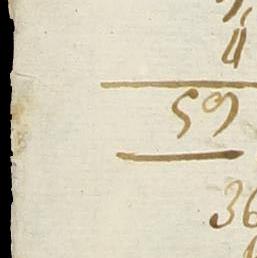 4
59
36